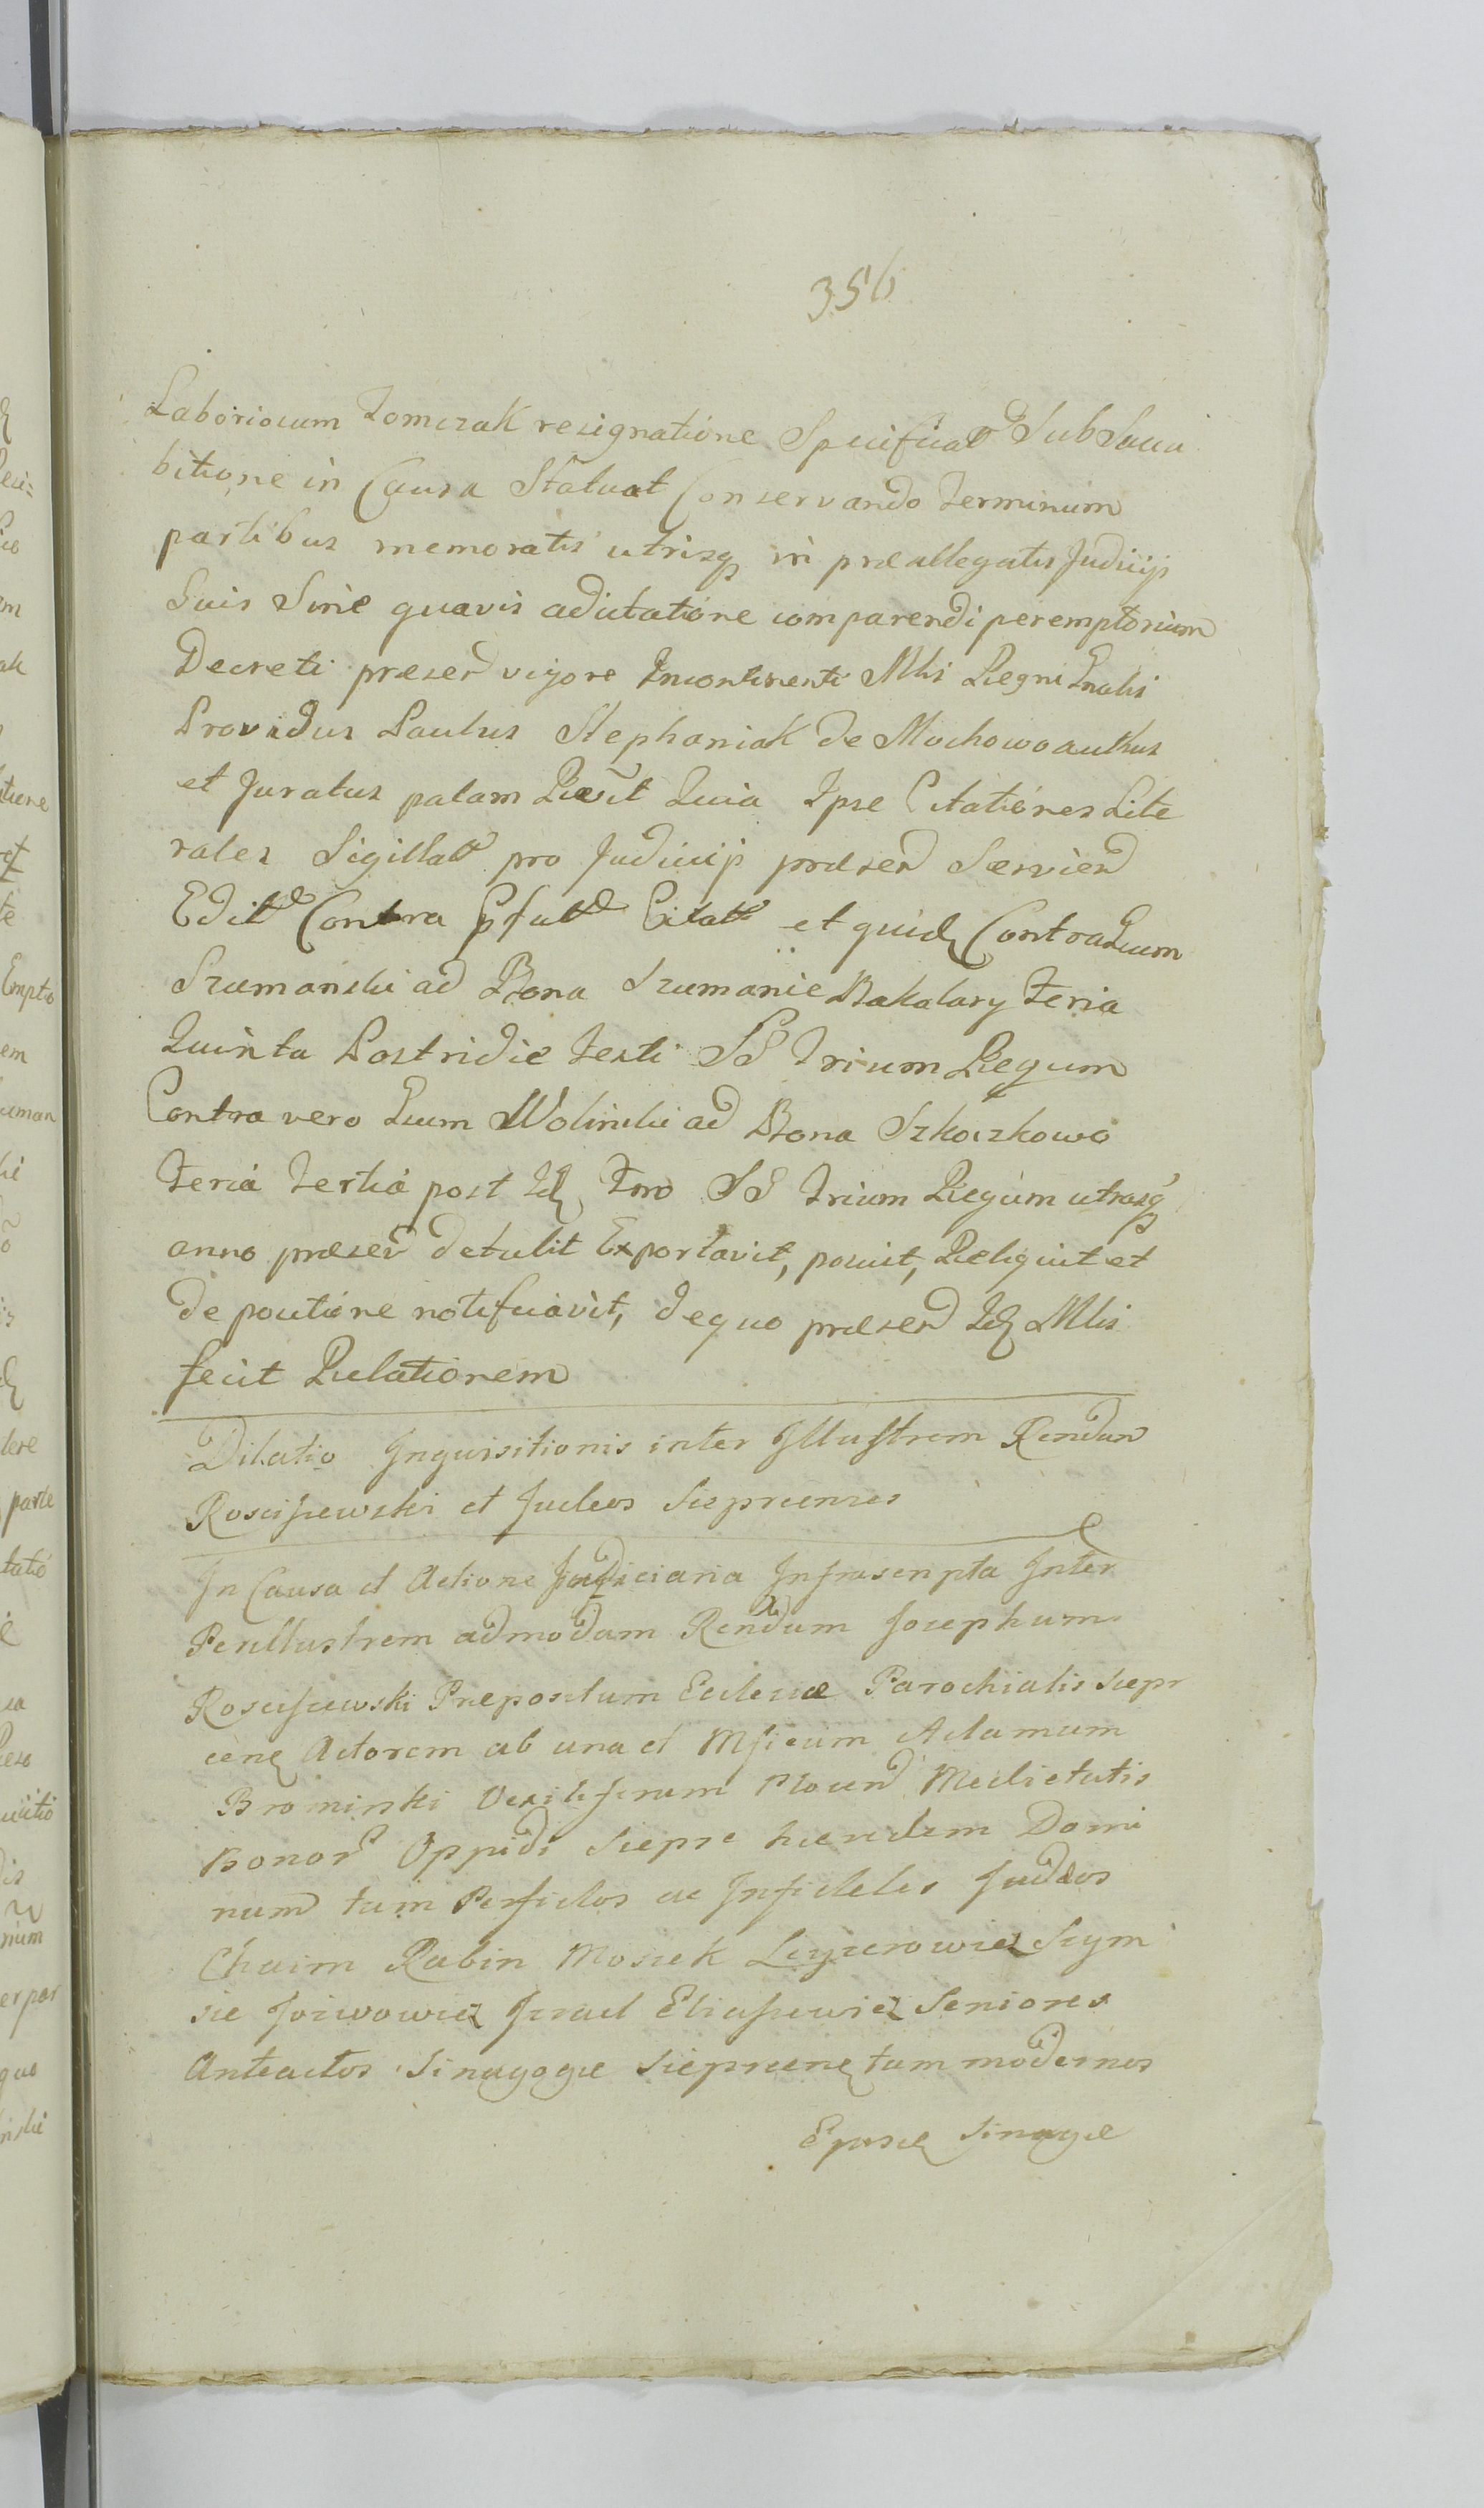 356
Laboriosum Tomczak resignatione Specificat Sub Succu
bitione in Causa Statuat Conservando Terminum
partibus memoratis utrisq in præallegatis Judicijs
Suis Sine quavis adcitatione comparendi peremptorium
Decreti præsen vigore Incontinenti Mlis Regni Gnalis
Providus Paulus Stephaniak de Mochowo authus
et Juratus palam Rec̃vit Quia Ipse Citationes Lite
rales Sigillatt pro Judicijs præsen Servien
Edit Contra Pfatt Citatt et quid Contra Gum
Szumanski ad Bona Szumanie Bakalary Feria
Quinta Postridie Festi SS Trium Regum
Contra vero Gum Wolinski ad Bona Szkoczkowo
Feria Tertia post Id Fm SS Trium Regum utrasq
anno præsen detulit Exportavit, posuit, Reliquit et
de positione notificavit, de quo præsen Id Mlis
fecit Relationem
Dilatio Inquisitionis inter Illustrem Rendum
Roscisewski et Judeos Sieprcenses
In Causa et Actione Judiciaria Infrascripta Inter
Perillustrem admodum Rendum Josephum
Roscisewski Præpositum Ecclesiæ Parochialis Siepr
cen Actorem ab una et Mficum Adamum
Brominski Vexiliferum Plocen Medietatis
Bonor Oppidi Sieprc hæredem Domi
num tum Perfidos ac Infideles Judæos
Chaim Rabin Mosiek Leyzerowicz Szym
sie Joiwowicz Izrael Eliasiewicz Seniores
Anteactos Sinagogæ Sieprcen tum modernos
Ejusd Sinagæ